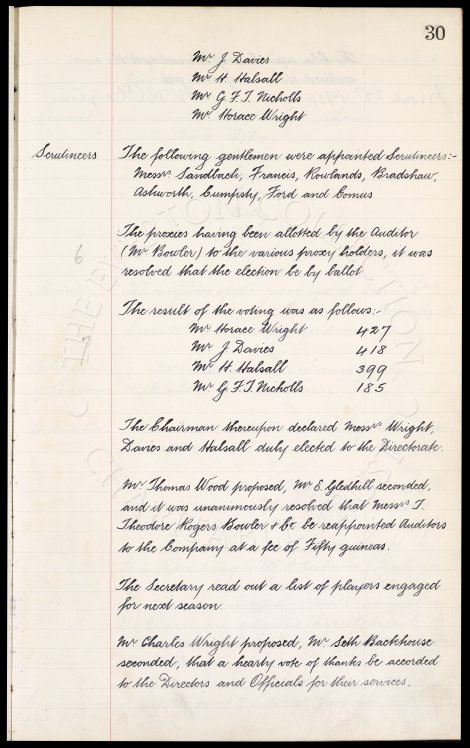 30
Mr J Davies
Mr H. Halsall
Mr G. F. T. Nicholls
Mr Horace Wright
Scrutineers
The following gentlemen were appointed Scrutineers:-
Messrs Sandbach, Francis, Rowlands, Bradshaw,
Ashworth, Cumpsty, Ford and Comus
The proxies having been allotted by the Auditor
(Mr Bowler) to the various proxy holders, it was
resolved that the election be by ballot
6
The result of the voting was as follows:-
Mr Horace Wright 427
Mr J Davies 418
Mr H. Halsall 399
Mr G. F. T. Nicholls 185
The Chairman thereupon declared Messrs Wright,
Davies and Halsall duly elected to the Directorate.
Mr Thomas Wood proposed, Mr E. Gledhill seconded,
and it was unanimously resolved that Messrs T.
Theodore Rogers Bowler & Co. be reappointed Auditors
to the Company at a fee of Fifty guineas.
The Secretary read out a list of players engaged
for next season.
Mr Charles Wright proposed, Mr Seth Backhouse
seconded, that a hearty vote of thanks be accorded
to the Directors and Officials for their services.